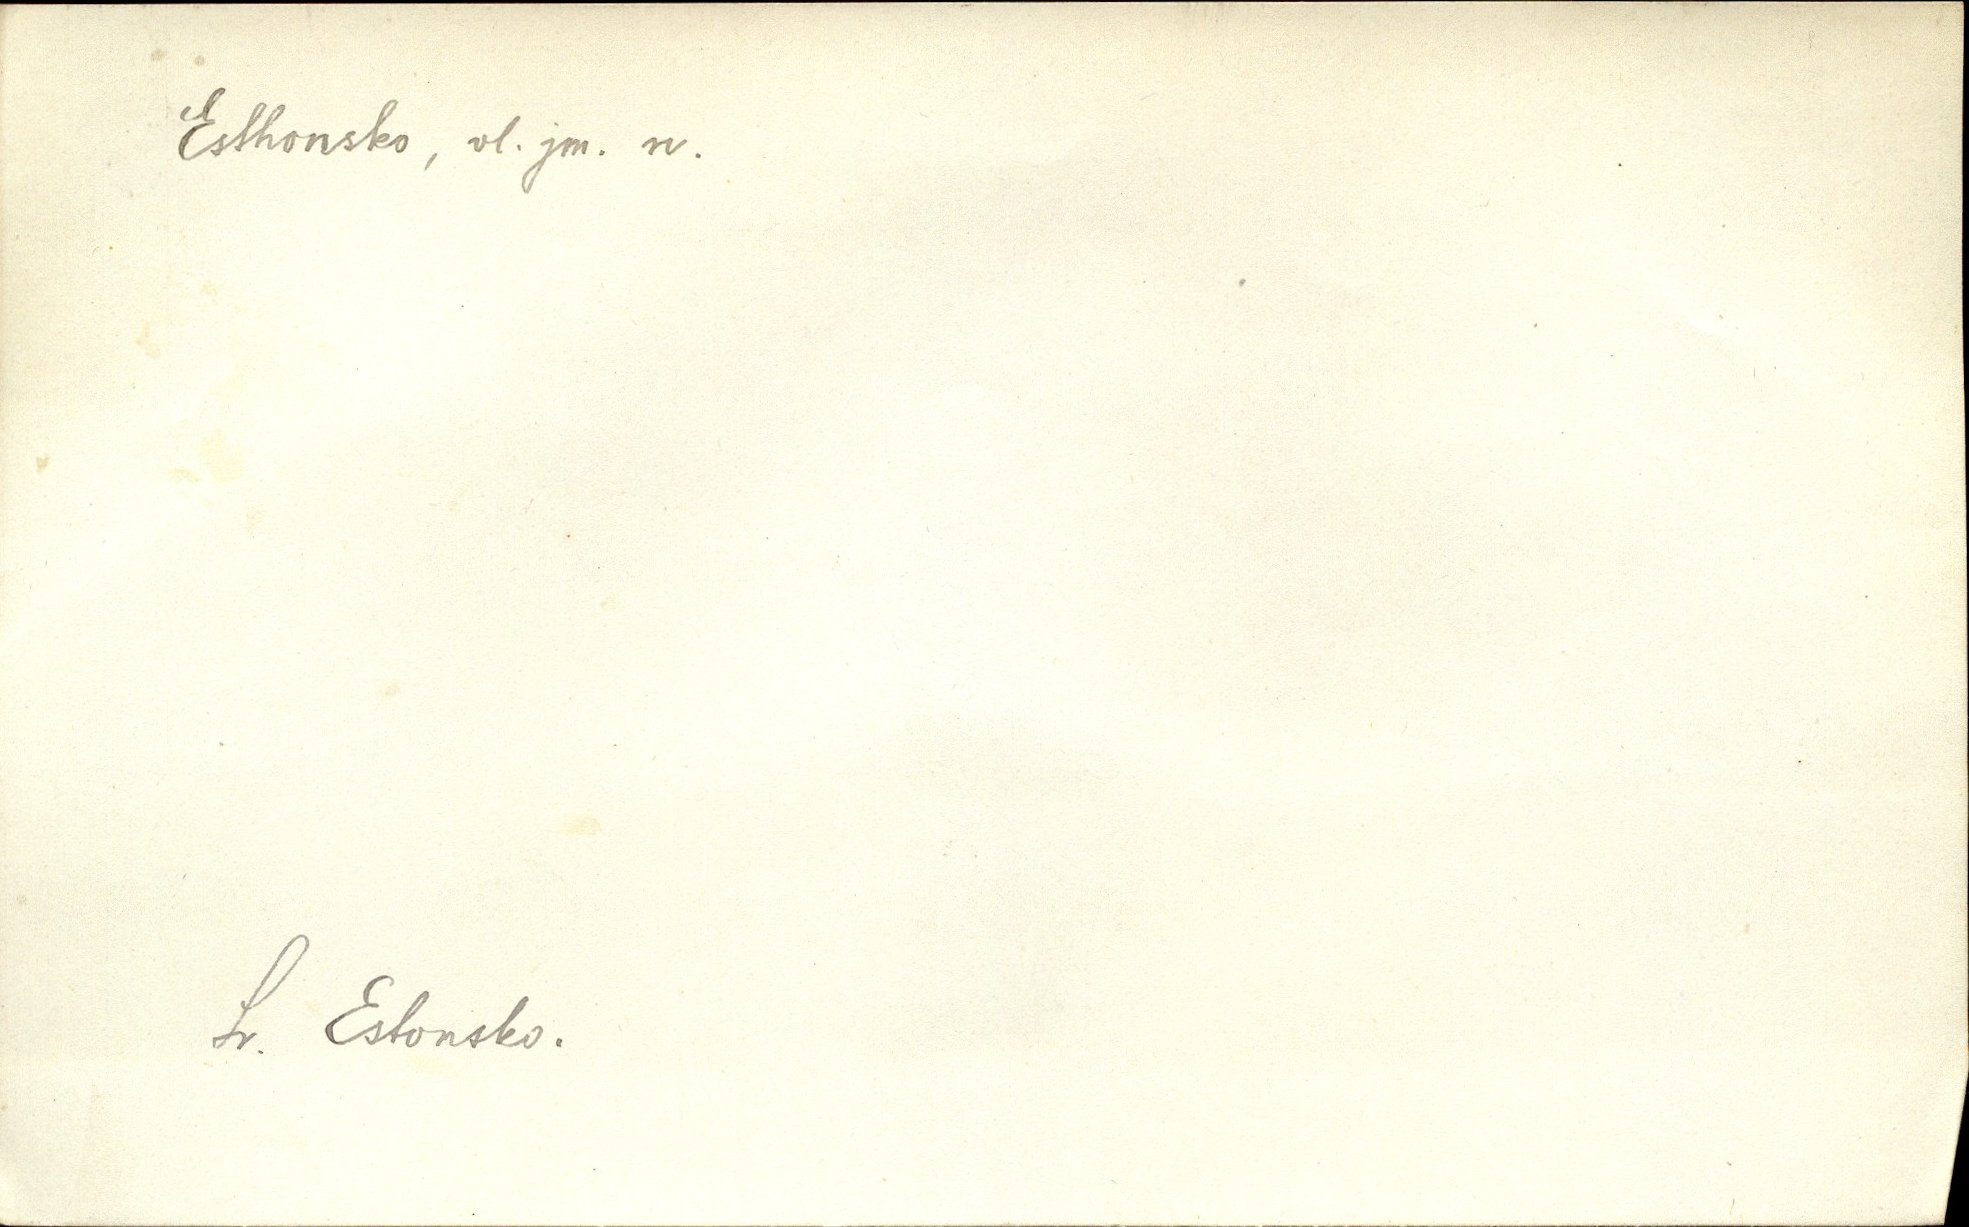 Esthonsko, vl. jm. n.
Sr. Estonsko.